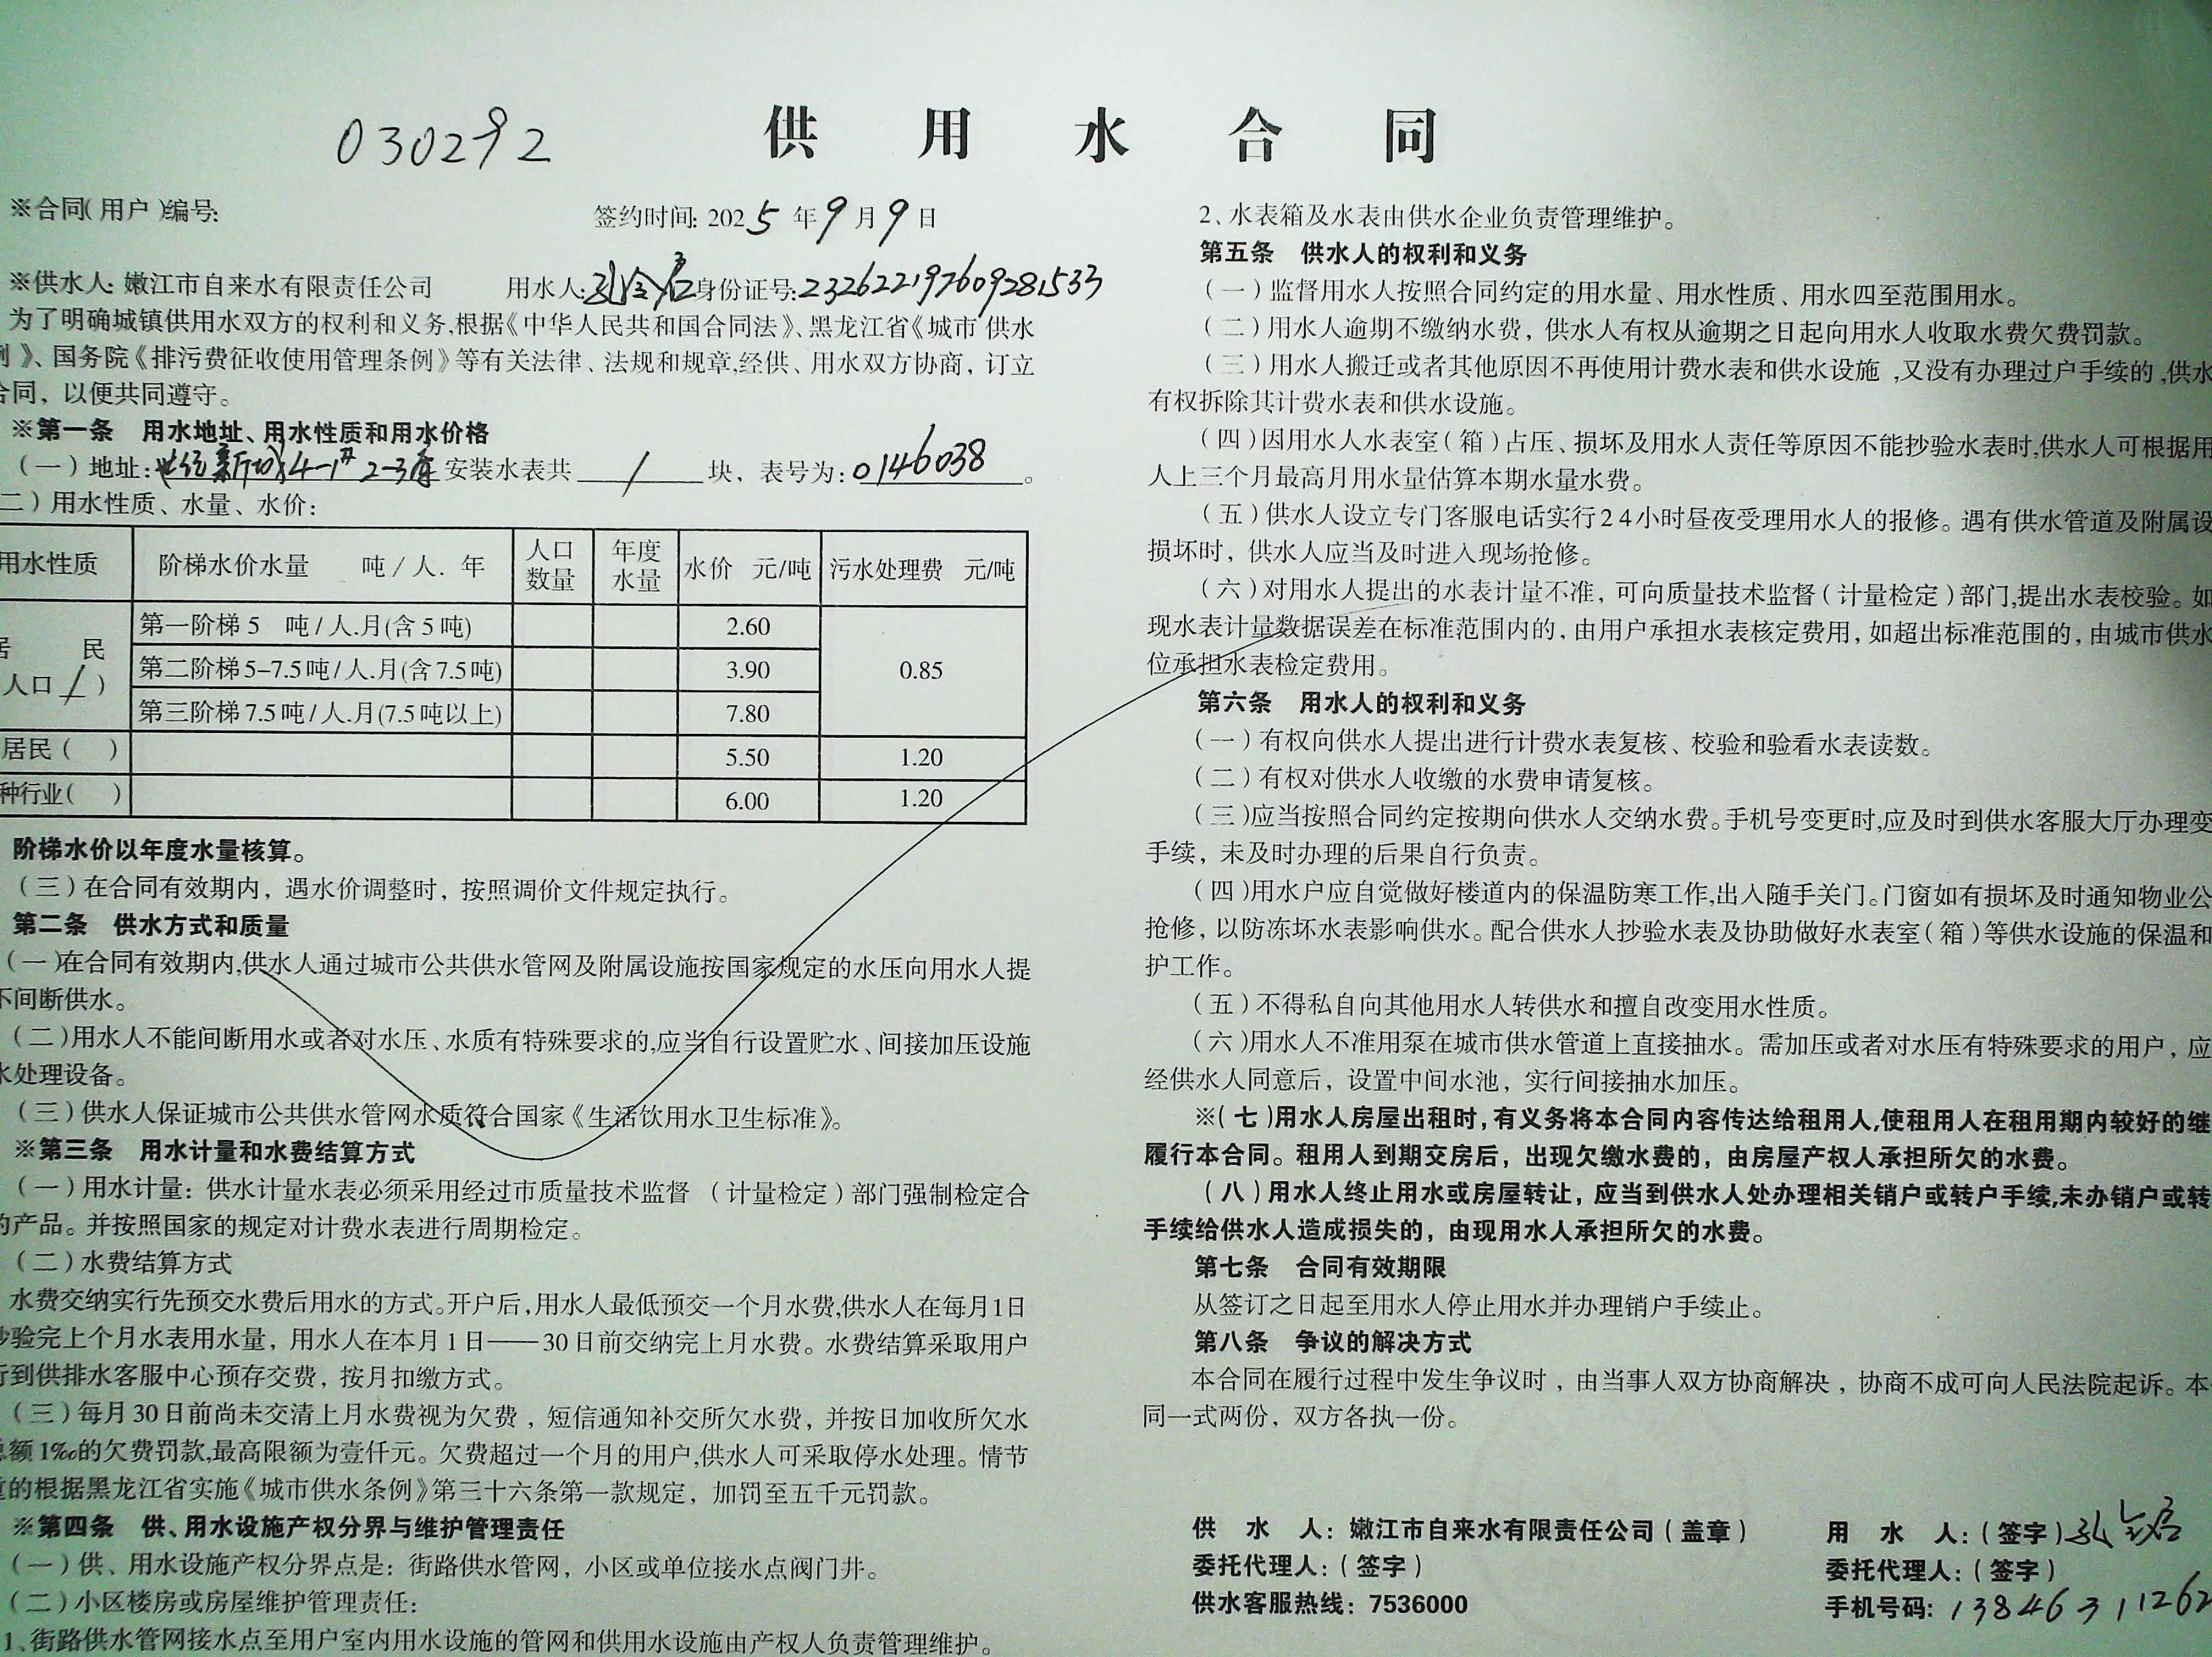 030292
供用水合同
※合同(用户)编号:
签约时间: 2025年9月9日
※供水人: 嫩江市自来水有限责任公司 用水人: 身份证号:232622197609281533
为了明确城镇供用水双方的权利和义务,根据《中华人民共和国合同法》、黑龙江省《城市供水
例》、国务院《排污费征收使用管理条例》等有关法律、法规和规章,经供、用水双方协商，订立
合同，以便共同遵守。
※第一条 用水地址、用水性质和用水价格
(一)地址: 新城4-1 2-3 安装水表共 1 块，表号为: 0146038。
二)用水性质、水量、水价:
用水性质 阶梯水价水量 吨/人.年 人口数量 年度水量 水价 元/吨 污水处理费 元/吨
居民
人口1)
第一阶梯5 吨/人.月(含5吨) 2.60
第二阶梯5-7.5吨/人.月(含7.5吨) 3.90 0.85
第三阶梯7.5吨/人.月(7.5吨以上) 7.80
居民( ) 5.50 1.20
种行业( ) 6.00 1.20
阶梯水价以年度水量核算。
(三)在合同有效期内，遇水价调整时，按照调价文件规定执行。
第二条 供水方式和质量
(一)在合同有效期内,供水人通过城市公共供水管网及附属设施按国家规定的水压向用水人提
不间断供水。
(二)用水人不能间断用水或者对水压、水质有特殊要求的,应当自行设置贮水、间接加压设施
水处理设备。
(三)供水人保证城市公共供水管网水质符合国家《生活饮用水卫生标准》。
※第三条 用水计量和水费结算方式
(一)用水计量: 供水计量水表必须采用经过市质量技术监督 (计量检定)部门强制检定合
的产品。并按照国家的规定对计费水表进行周期检定。
(二)水费结算方式
水费交纳实行先预交水费后用水的方式。开户后,用水人最低预交一个月水费,供水人在每月1日
抄验完上个月水表用水量，用水人在本月1日——30日前交纳完上月水费。水费结算采取用户
行到供排水客服中心预存交费，按月扣缴方式。
(三)每月30日前尚未交清上月水费视为欠费，短信通知补交所欠水费，并按日加收所欠水
总额1‰的欠费罚款,最高限额为壹仟元。欠费超过一个月的用户,供水人可采取停水处理。情节
重的根据黑龙江省实施《城市供水条例》第三十六条第一款规定，加罚至五千元罚款。
※第四条 供、用水设施产权分界与维护管理责任
(一)供、用水设施产权分界点是: 街路供水管网，小区或单位接水点阀门井。
(二)小区楼房或房屋维护管理责任:
1、街路供水管网接水点至用户室内用水设施的管网和供用水设施由产权人负责管理维护。
2、水表箱及水表由供水企业负责管理维护。
第五条 供水人的权利和义务
(一)监督用水人按照合同约定的用水量、用水性质、用水四至范围用水。
(二)用水人逾期不缴纳水费，供水人有权从逾期之日起向用水人收取水费欠费罚款。
(三)用水人搬迁或者其他原因不再使用计费水表和供水设施,又没有办理过户手续的,供水
有权拆除其计费水表和供水设施。
(四)因用水人水表室(箱)占压、损坏及用水人责任等原因不能抄验水表时,供水人可根据用
人上三个月最高月用水量估算本期水量水费。
(五)供水人设立专门客服电话实行24小时昼夜受理用水人的报修。遇有供水管道及附属设
损坏时，供水人应当及时进入现场抢修。
(六)对用水人提出的水表计量不准，可向质量技术监督(计量检定)部门,提出水表校验。如
现水表计量数据误差在标准范围内的，由用户承担水表核定费用，如超出标准范围的，由城市供水
位承担水表检定费用。
第六条 用水人的权利和义务
(一)有权向供水人提出进行计费水表复核、校验和验看水表读数。
(二)有权对供水人收缴的水费申请复核。
(三)应当按照合同约定按期向供水人交纳水费。手机号变更时,应及时到供水客服大厅办理变
手续，未及时办理的后果自行负责。
(四)用水户应自觉做好楼道内的保温防寒工作,出入随手关门。门窗如有损坏及时通知物业公
抢修，以防冻坏水表影响供水。配合供水人抄验水表及协助做好水表室(箱)等供水设施的保温和
护工作。
(五)不得私自向其他用水人转供水和擅自改变用水性质。
(六)用水人不准用泵在城市供水管道上直接抽水。需加压或者对水压有特殊要求的用户，应
经供水人同意后，设置中间水池，实行间接抽水加压。
※(七)用水人房屋出租时,有义务将本合同内容传达给租用人,使租用人在租用期内较好的继
履行本合同。租用人到期交房后，出现欠缴水费的，由房屋产权人承担所欠的水费。
(八)用水人终止用水或房屋转让，应当到供水人处办理相关销户或转户手续,未办销户或转
手续给供水人造成损失的，由现用水人承担所欠的水费。
第七条 合同有效期限
从签订之日起至用水人停止用水并办理销户手续止。
第八条 争议的解决方式
本合同在履行过程中发生争议时，由当事人双方协商解决，协商不成可向人民法院起诉。本
同一式两份，双方各执一份。
供水人: 嫩江市自来水有限责任公司(盖章) 用水人: (签字)
委托代理人: (签字) 委托代理人: (签字)
供水客服热线: 7536000 手机号码: 13846311262